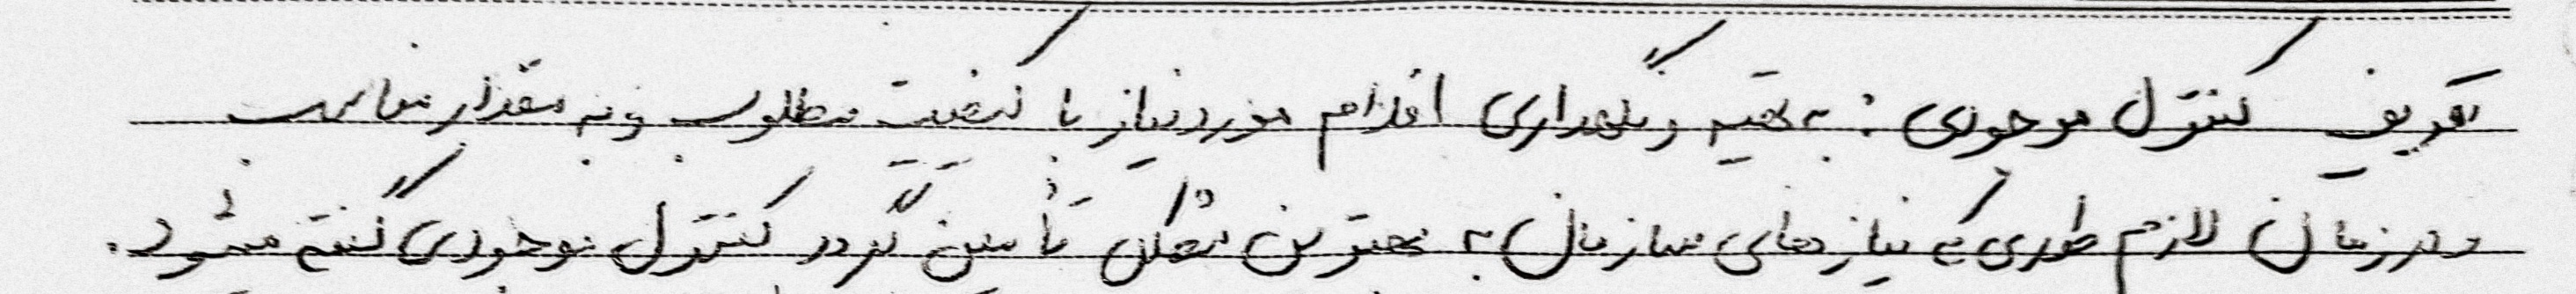 تعریف کنترل موجودی : به تهیه و نگهداری اقلام مورد نیاز با کیفیت مطلوب و به مقدار مناسب
و در زمان لازم طوری که نیازهای سازمان به بهترین شکل تأمین گردد کنترل موجودی گفته میشود.